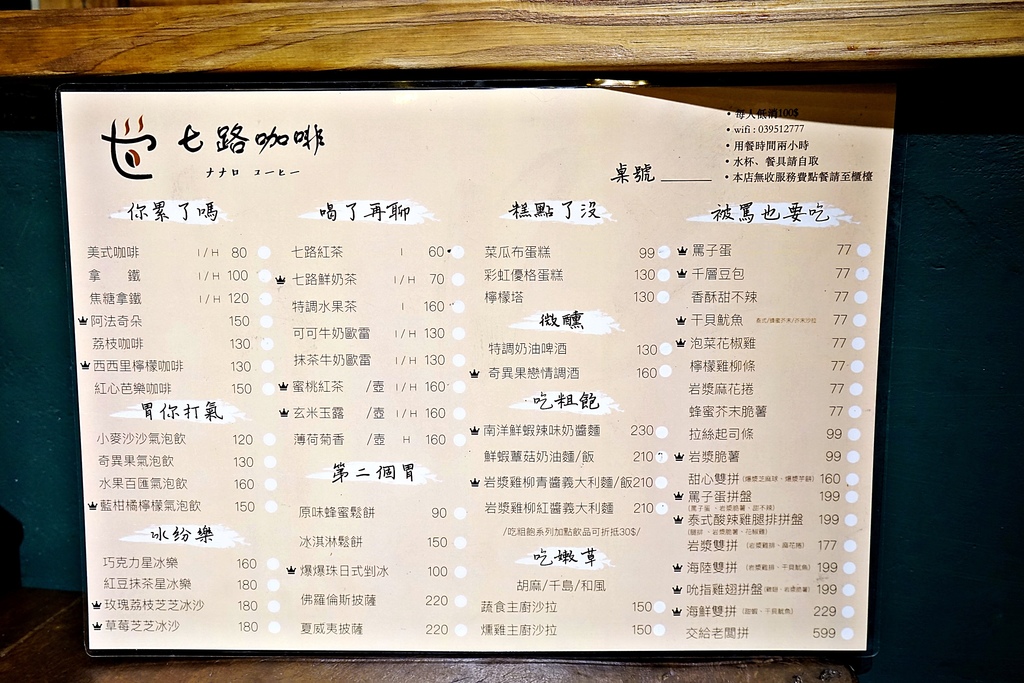 七路咖啡
ナナロ コーヒー
桌號
• 每人低消100$
• wifi : 039512777
• 用餐時間兩小時
• 水杯、餐具請自取
• 本店無收服務費點餐請至櫃檯
你累了嗎
美式咖啡 I / H 80
拿 鐵 I / H 100
焦糖拿鐵 I / H 120
阿法奇朵 150
荔枝咖啡 130
西西里檸檬咖啡 130
紅心芭樂咖啡 150
胃你打氣
小麥沙沙氣泡飲 120
奇異果氣泡飲 130
水果百匯氣泡飲 160
藍柑橘檸檬氣泡飲 150
冰紛樂
巧克力星冰樂 160
紅豆抹茶星冰樂 180
玫瑰荔枝芝芝冰沙 180
草莓芝芝冰沙 180
喝了再聊
七路紅茶 I 60
七路鮮奶茶 I / H 70
特調水果茶 I 160
可可牛奶歐雷 I / H 130
抹茶牛奶歐雷 I / H 130
蜜桃紅茶 /壺 I / H 160
玄米玉露 /壺 I / H 160
薄荷菊香 /壺 H 160
第二個胃
原味蜂蜜鬆餅 90
冰淇淋鬆餅 150
爆爆珠日式剉冰 100
佛羅倫斯披薩 220
夏威夷披薩 220
糕點了沒
菜瓜布蛋糕 99
彩虹優格蛋糕 130
檸檬塔 130
微醺
特調奶油啤酒 130
奇異果戀情調酒 160
吃粗飽
南洋鮮蝦辣味奶醬麵 230
鮮蝦蕈菇奶油麵/飯 210
岩漿雞柳青醬義大利麵/飯210
岩漿雞柳紅醬義大利麵 210
/吃粗飽系列加點飲品可折抵30$/
吃嫩草
胡麻/千島/和風
蔬食主廚沙拉 150
燻雞主廚沙拉 150
被罵也要吃
罵子蛋 77
千層豆包 77
香酥甜不辣 77
干貝魷魚 77
泡菜花椒雞 77
檸檬雞柳條 77
岩漿麻花捲 77
蜂蜜芥末脆薯 77
拉絲起司條 99
岩漿脆薯 99
甜心雙拼 (爆漿芝麻球、爆漿芋餅) 160
罵子蛋拼盤 199
(罵子蛋、岩漿脆薯、甜不辣)
泰式酸辣雞腿排拼盤 199
(腿排、岩漿脆薯、花椒雞)
岩漿雙拼 (岩漿雞排、麻花捲) 177
海陸雙拼 (岩漿雞排、干貝魷魚) 199
吮指雞翅拼盤 199
海鮮雙拼 229
交給老闆拼 599